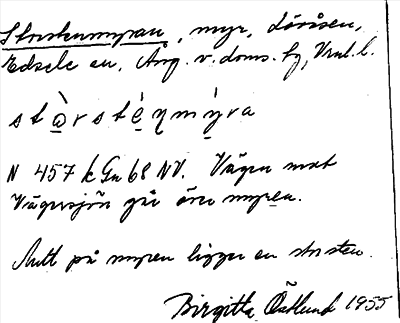 Storstenmyran, myr, Lövåsen,
Edsele sn, Ång. v. doms. fg, Vnl. l.
sto̠̊̀rsté̠ŋmy̠̍ra
N 457 k Gn 68 NV. Vägen mot
Vägersjön går över myren.
Mitt på myren ligger en stor sten.
Birgitta Östlund 1955